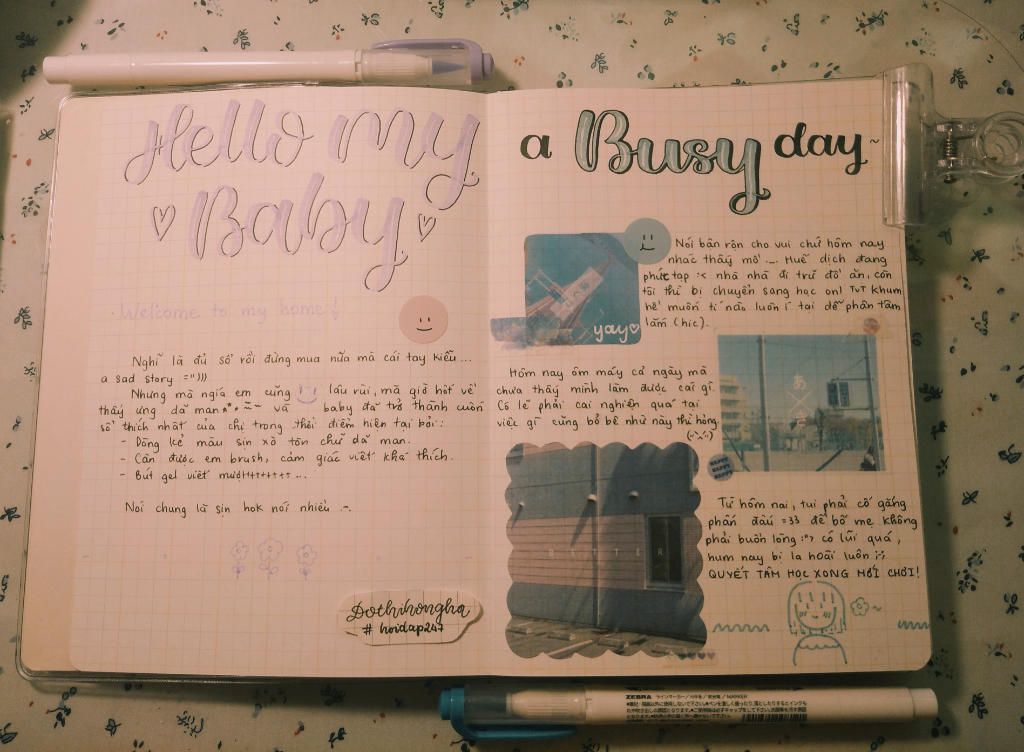 Hello My
Baby
Welcome to my home
Nghĩ là đủ sổ rồi đừng mua nữa mà cái tay kiểu ...
a sad story =")))
Nhưng mà ngía em cũng lâu rùi, mà giờ hốt về
thấy ưng dã man và baby đã trở thành cuốn
sổ thích nhất của chị trong thời điểm hiện tại bởi:
- Dòng kẻ màu sin xò tôn chữ dã man.
- Cân được em brush, cảm giác viết khá thích.
- Bút gel viết mượttttttttt ...
Nói chung là sịn hok nói nhiều .-.
Dothihongha
# hoidap247
a Busy day~
Nói bận rộn cho vui chứ hôm nay
nhác thấy mồ ._. Huế dịch đang
phức tạp :< nhà nhà đi trữ đồ ăn, còn
tôi thì bị chuyển sang học onl TvT khum
hề muốn tí nào luôn í tại dễ phân tâm
lắm (hic).
yay
Hôm nay ôm máy cả ngày mà
chưa thấy mình làm được cái gì
Có lẽ phải cai nghiện quá tại
việc gì cũng bỏ bê như này thì hỏng
あ
×
HAPPY
HAPPY
HAPPY
BETTER
Từ hôm nai, tui phải cố gắng
phấn đấu =33 để bố mẹ không
phải buồn lòng :"> có lũi quá,
hum nay bị la hoài luôn ;-;
QUYẾT TÂM HỌC XONG MỚI CHƠI!
ZEBRA ラインマーカー
MARKER